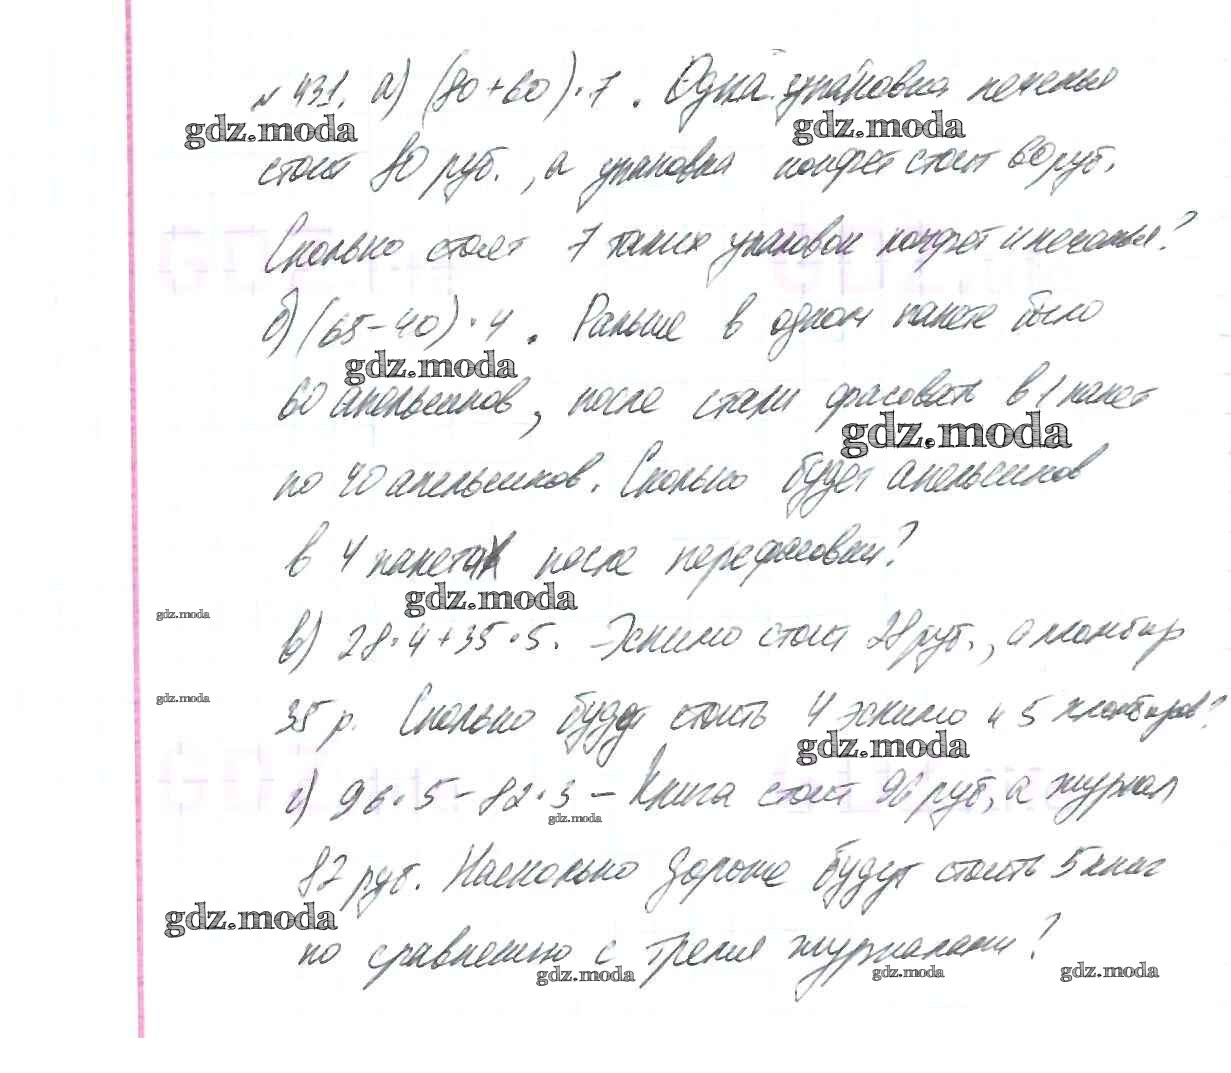 № 431. а) (80+60)·7. Одна упаковка печенья
gdz.moda gdz.moda
стоит 80 руб., а упаковка конфет стоит 60 руб.
Сколько стоят 7 таких упаковок конфет и печенья?
б) (65-40)·4. Раньше в одном пакете было
gdz.moda
60 апельсинов, после стали фасовать в 1 пакет
gdz.moda
по 40 апельсинов. Сколько будет апельсинов
в 4 пакетах после перефасовки?
gdz.moda
gdz.moda
в) 28·4+35·5. Эскимо стоит 28 руб., а пломбир
gdz.moda
35 р. Сколько будет стоить 4 эскимо и 5 пломбиров?
gdz.moda
г) 96·5-82·3 – Книга стоит 96 руб, а журнал
gdz.moda
82 руб. Насколько дороже будут стоить 5 книг
gdz.moda
по сравнению с тремя журналами?
gdz.moda gdz.moda gdz.moda